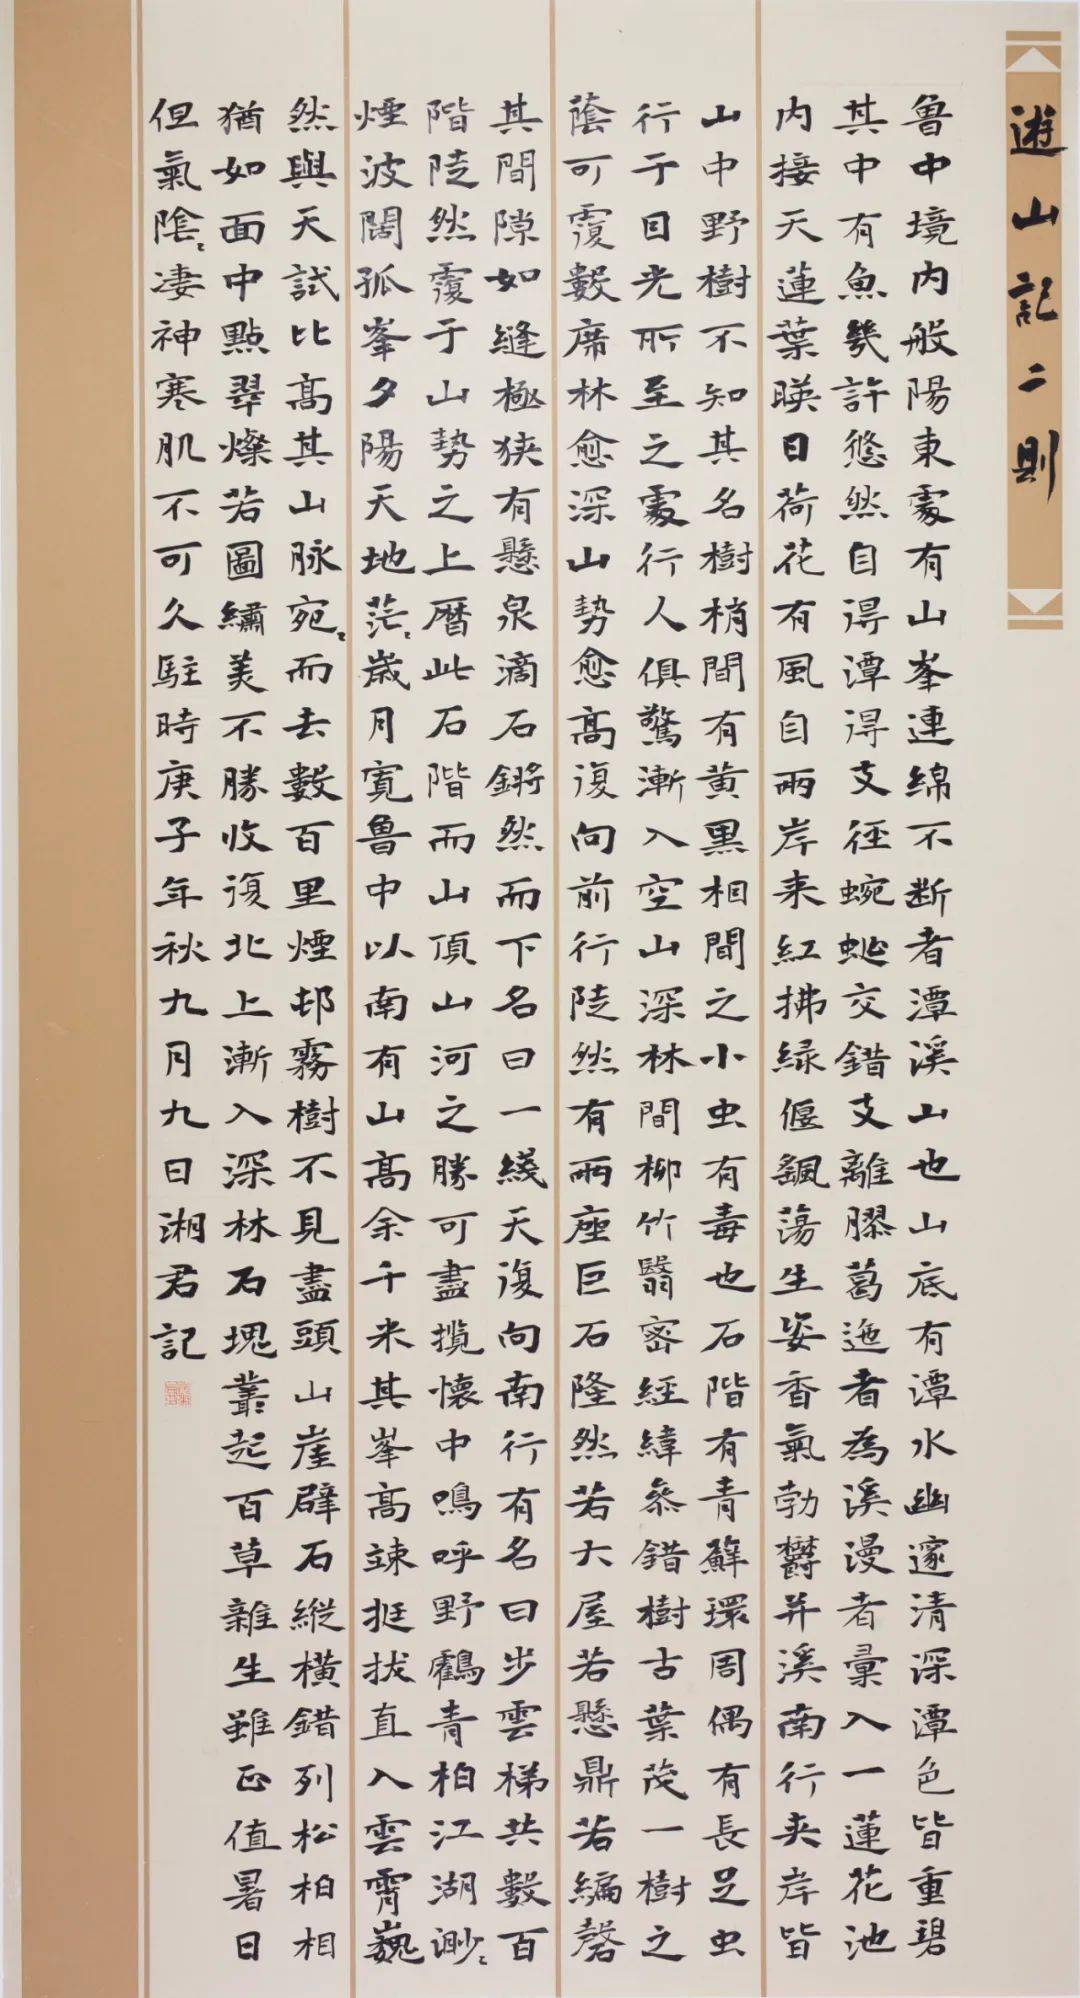 遊山記二則
魯中境内般陽東處有山峯連綿不断者潭溪山也山底有潭水幽邃清深潭色皆重碧
其中有魚幾許悠然自得潭得支徑蜿蜒交錯支離膠葛迤者為溪漫者彙入一蓮花池
内接天蓮葉暎日荷花有風自兩岸来紅拂緑偃飆蕩生姿香氣勃鬱并溪南行夹岸皆
山中野樹不知其名樹梢間有黄黑相間之小虫有毒也石階有青蘚環周偶有長足虫
行于目光所至之處行人俱驚漸入空山深林間柳竹翳密經緯叅錯樹古葉茂一樹之
蔭可覆數席林愈深山勢愈高復向前行陡然有兩座巨石隆然若大屋若懸鼎若編磬
其間隙如縫極狹有懸泉滴石鏘然而下名曰一綫天復向南行有名曰步雲梯共數百
階陡然覆于山勢之上曆此石階而山頂山河之勝可盡攬懷中鳴呼野鸖青柏江湖渺〻
煙波闊孤峯夕陽天地茫〻歲月寛魯中以南有山高余千米其峯高竦挺拔直入雲霄巍
然與天試比高其山脉宛〻而去數百里煙邨霧樹不見盡頭山崖壁石縱橫錯列松柏相
猶如面中點翠燦若圖繡美不勝收復北上漸入深林石塊叢起百草雜生雖正值暑日
但氣陰〻凄神寒肌不可久駐時庚子年秋九月九日湘君記